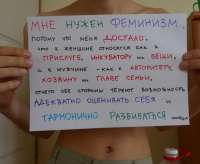 МНЕ НУЖЕН ФЕМИНИЗМ,
ПОТОМУ ЧТО МЕНЯ ДОСТАЛО,
ЧТО К ЖЕНЩИНЕ ОТНОСЯТСЯ КАК К
ПРИСЛУГЕ, ИНКУБАТОРУ ИЛИ ВЕЩИ,
А К МУЖЧИНЕ - КАК К АВТОРИТЕТУ,
ХОЗЯИНУ И ГЛАВЕ СЕМЬИ,
ОТЧЕГО ОБЕ СТОРОНЫ ТЕРЯЮТ ВОЗМОЖНОСТЬ
АДЕКВАТНО ОЦЕНИВАТЬ СЕБЯ И
ГАРМОНИЧНО РАЗВИВАТЬСЯ